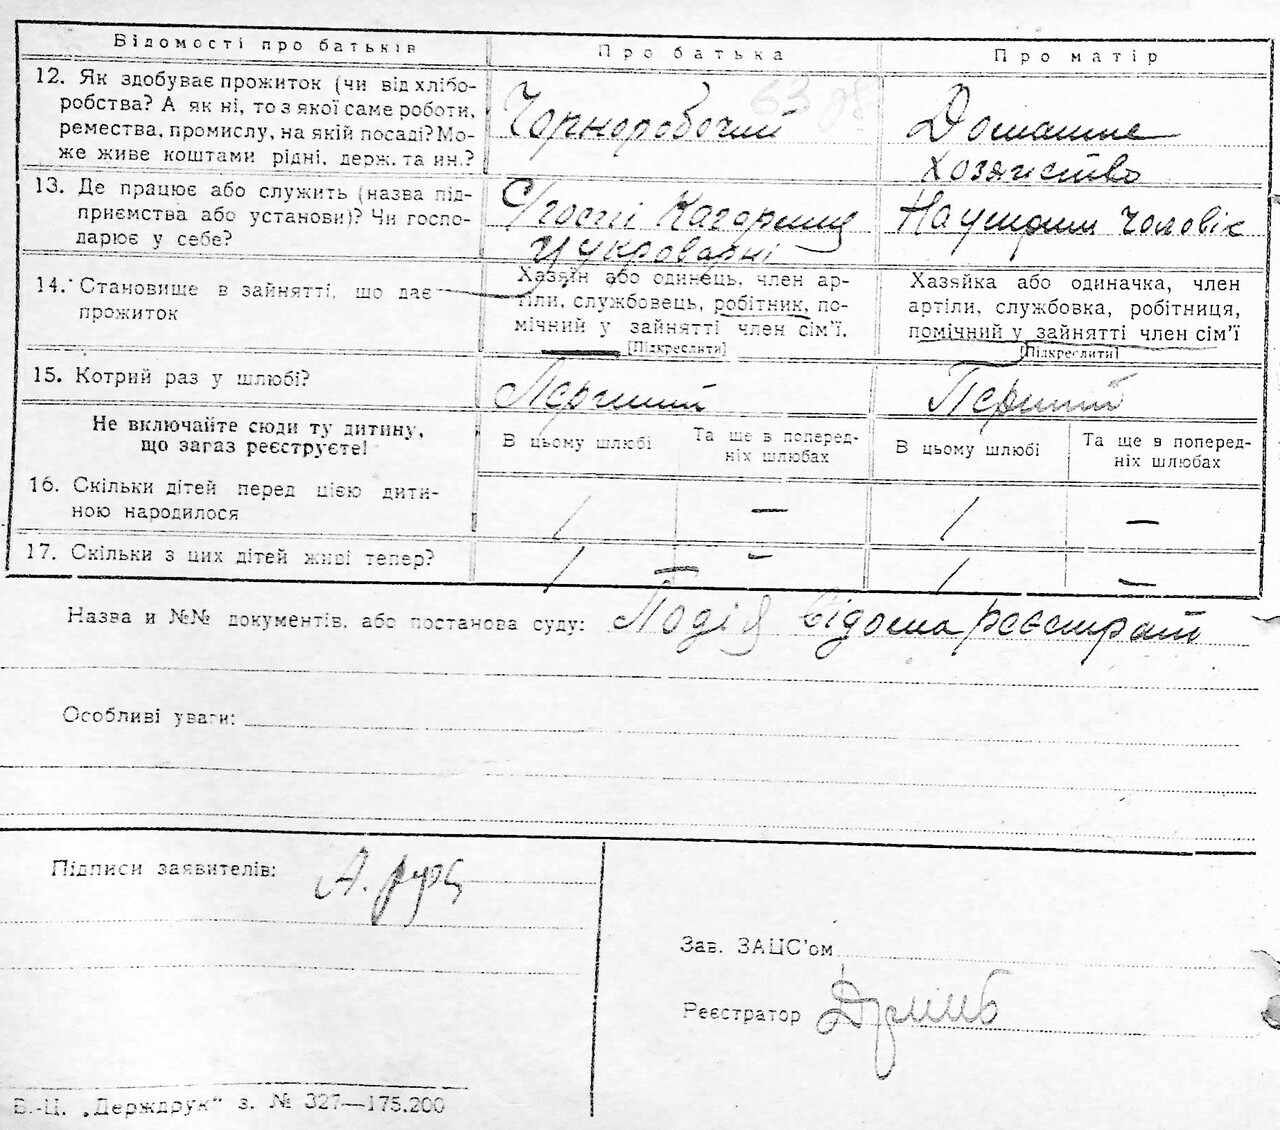 Відомості про батьків
Про батька
Про матір
12. Як здобуває прожиток (чи від хлібо-
робства? А як ні, то з якої саме роботи,
ремества, промислу, на якій посаді? Мо-
же живе коштами рідні, держ. та ин.?
Чорноробочий
Домашнє
хозяйство
13. Де працює або служить (назва під-
приємства або установи)? Чи госпо-
дарює у себе?
На утрим чоловік
14. Становище в зайнятті, що дає
прожиток
Хазяїн або одинець, член ар-
тіли, службовець, робітник, по-
мічний у зайнятті член сім'ї.
[Підкреслити]
Хазяйка або одиначка, член
артіли, службовка, робітниця,
помічний у зайнятті член сім'ї
[Підкреслити]
15. Котрий раз у шлюбі?
Перший
Перший
Не включайте сюди ту дитину,
що загаз реєструєте!
В цьому шлюбі
Та ще в поперед-
ніх шлюбах
В цьому шлюбі
Та ще в поперед-
ніх шлюбах
16. Скільки дітей перед цією дити-
ною народилося
1 — 1 —
17. Скільки з цих дітей живі тепер?
1 — 1 —
Назва и №№ документів, або постанова суду: Подія відома реєстрат
Особливі уваги:
Підписи заявителів: А.
Зав. ЗАЦС'ом
Реєстратор
Б.-Ц. „Держдрук" з. № 327—175.200